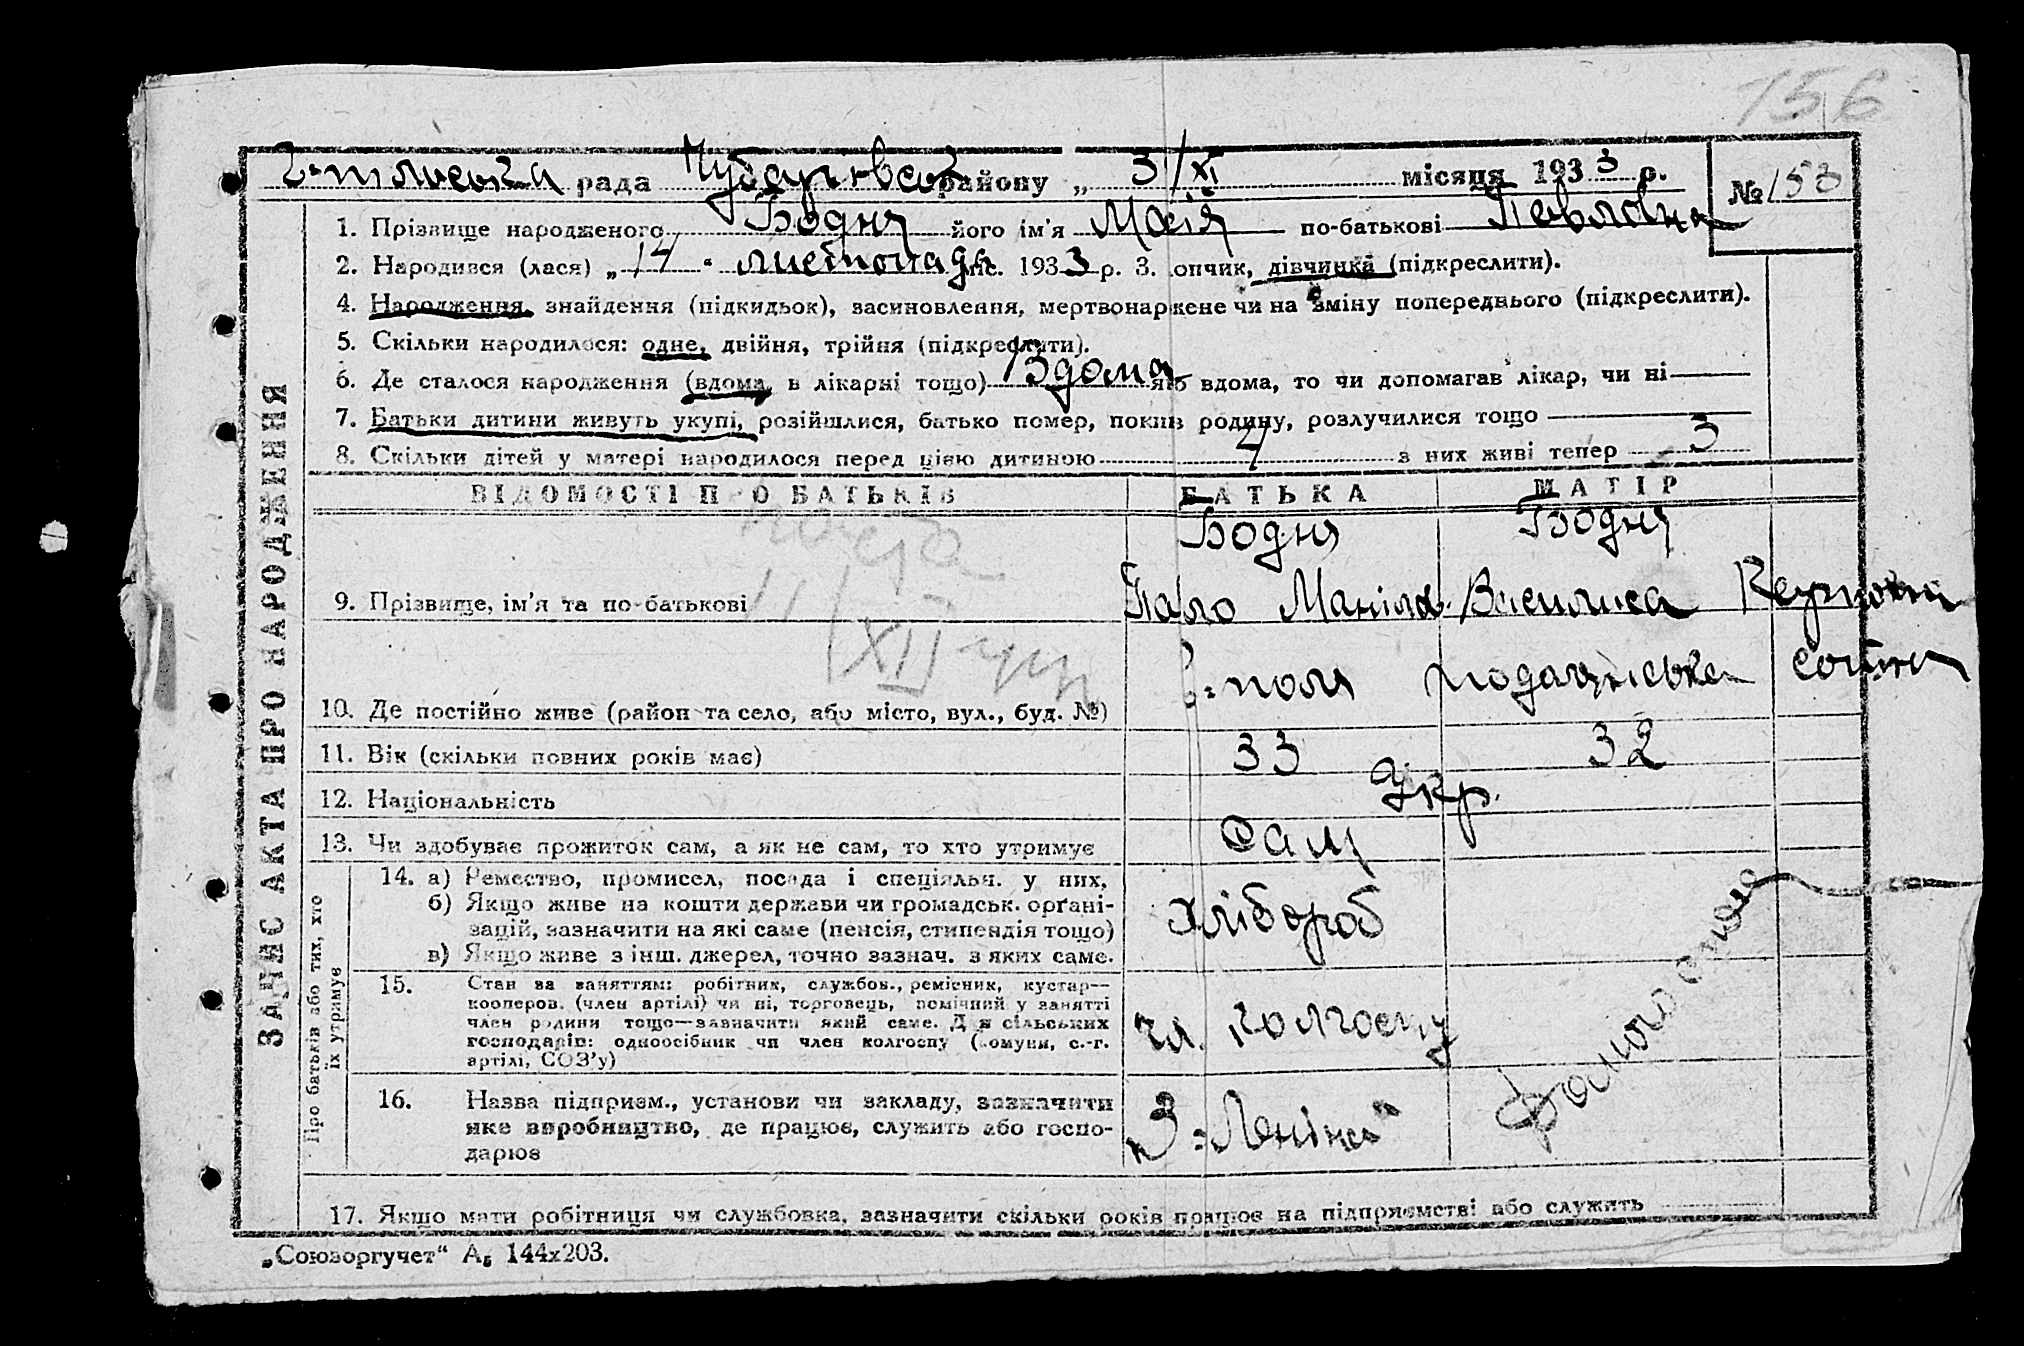 156
Г-пільська рада Чубарівськ району „ 3/XI місяця 1933 р. № 153
1. Прізвище народженого Бодня його ім'я Марія по-батькові Павлівна
2. Народився (лася) „ 14 " листопада міс. 1933 р. 3. опчик, дівчинка (підкреслити).
4. Народження, знайдення (підкидьок), засиновлення, мертвонаржене чи на зміну попереднього (підкреслити).
5. Скільки народилося: одне, двійня, трійня (підкреслити).
6. Де сталося народження (вдома, в лікарні тощо) Вдома яко вдома, то чи допомагав лікар, чи ні
7. Батьки дитини живуть укупі, розійшлися, батько помер, покинв родину, розлучилися тощо
8. Скільки дітей у матері народилося перед цією дитиною 4 з них живі тепер 3
ВІДОМОСТІ ПРО БАТЬКІВ БАТЬКА МАТІР
Бодня Бодня
9. Прізвище, ім'я та по-батькові Павло Василиса
11/XII
10. Де постійно живе (район та село, або місто, вул., буд. №) Г=поля сотня
11. Вік (скільки повних років має) 33 32
12. Національність Укр.
13. Чи здобуває прожиток сам, а як не сам, то хто утримує Сам
ЗАПИС АКТА ПРО НАРОДЖЕННЯ
Про батьків або тих, хто їх утримує
14. а) Ремество, промисел, посада і спеціяльн. у них,
б) Якщо живе на кошти держави чи громадськ. орґані-
зацій, зазначити на які саме (пенсія, стипендія тощо)
в) Якщо живе з інш. джерел, точно зазнач. з яких саме.
хлібороб
15. Стан за заняттям: робітник, службов., ремісник, кустар—
кооперов. (член артілі) чи ні, торговець, помічний у занятті
член родини тощо—зазначити який саме. Для сільських
господарів: одноосібник чи член колгоспу (комуни, с.-г.
артілі, СОЗ'у)
чл. колгоспу
16. Назва підприєм., установи чи закладу, зазначити
яке виробництво, де працює, служить або госпо-
дарює
17. Якщо мати робітниця чи службовка, зазначити скільки років працює на підприємстві або служить
„Союзоргучет“ А5 144x203.